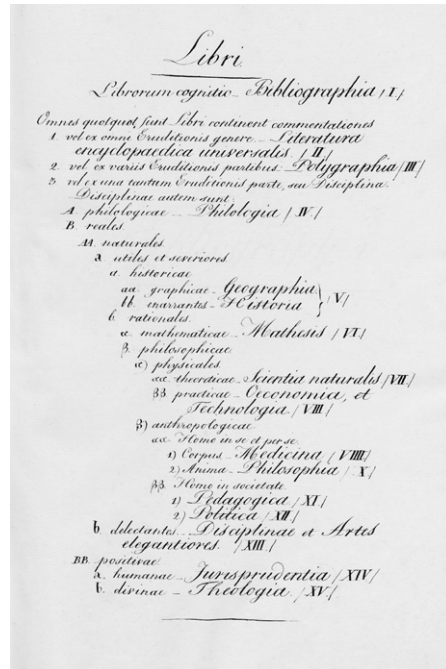 Libri.
Librorum cognitio – Bibliographia /I/
Omnes quotquot sunt Libri continent commentationes
1. vel ex omni Eruditionis genere – Literatura
encyclopaedica universalis. /II/
2. vel ex variis Eruditionis partibus – Polygraphia /III/
3. vel ex una tantum Eruditionis parte, seu Disciplina.
Disciplinae autem sunt:
A. philologicae – Philologia /IV./
B. reales.
AA. naturales.
a. utiles et severiores.
a. historicae
aa. graphicae – Geographia
bb. enarrantes – Historia } V/
b. rationales.
α. mathematicae – Mathesis /VI./
β. philosophicae.
α) physicales.
αα. theoreticae – Scientia naturalis /VII./
ββ. practicae – Oeconomia, et
Technologia. /VIII/
β) anthropologicae.
αα. Homo in se et per se.
1) Corpus – Medicina /VIIII/
2) Anima – Philosophia /X/
ββ. Homo in societate.
1) Pedagogica /XI/
2) Politica /XII/
b. delectantes – Disciplinae et Artes
elegantiores. /XIII./
BB. positivae.
a. humanae – Jurisprudentia /XIV/
b. divinae – Theologia. /XV./